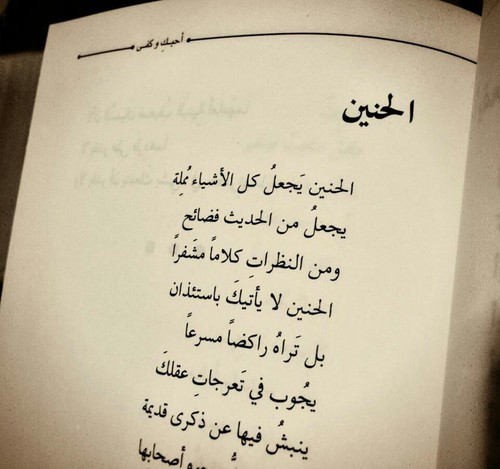 أحبك وكفى
الحنين
الحنين يَجعلُ كل الأشياء مُملة
يجعلُ من الحديث فضائح
ومن النظراتِ كلاماً مشَفراً
الحنين لا يأتيكَ باستئذان
بل تَراهُ راكضاً مسرعاً
يجُوب في تَعرجاتِ عقلكَ
ينبشُ فيها عن ذكرى قديمة
أصحابها